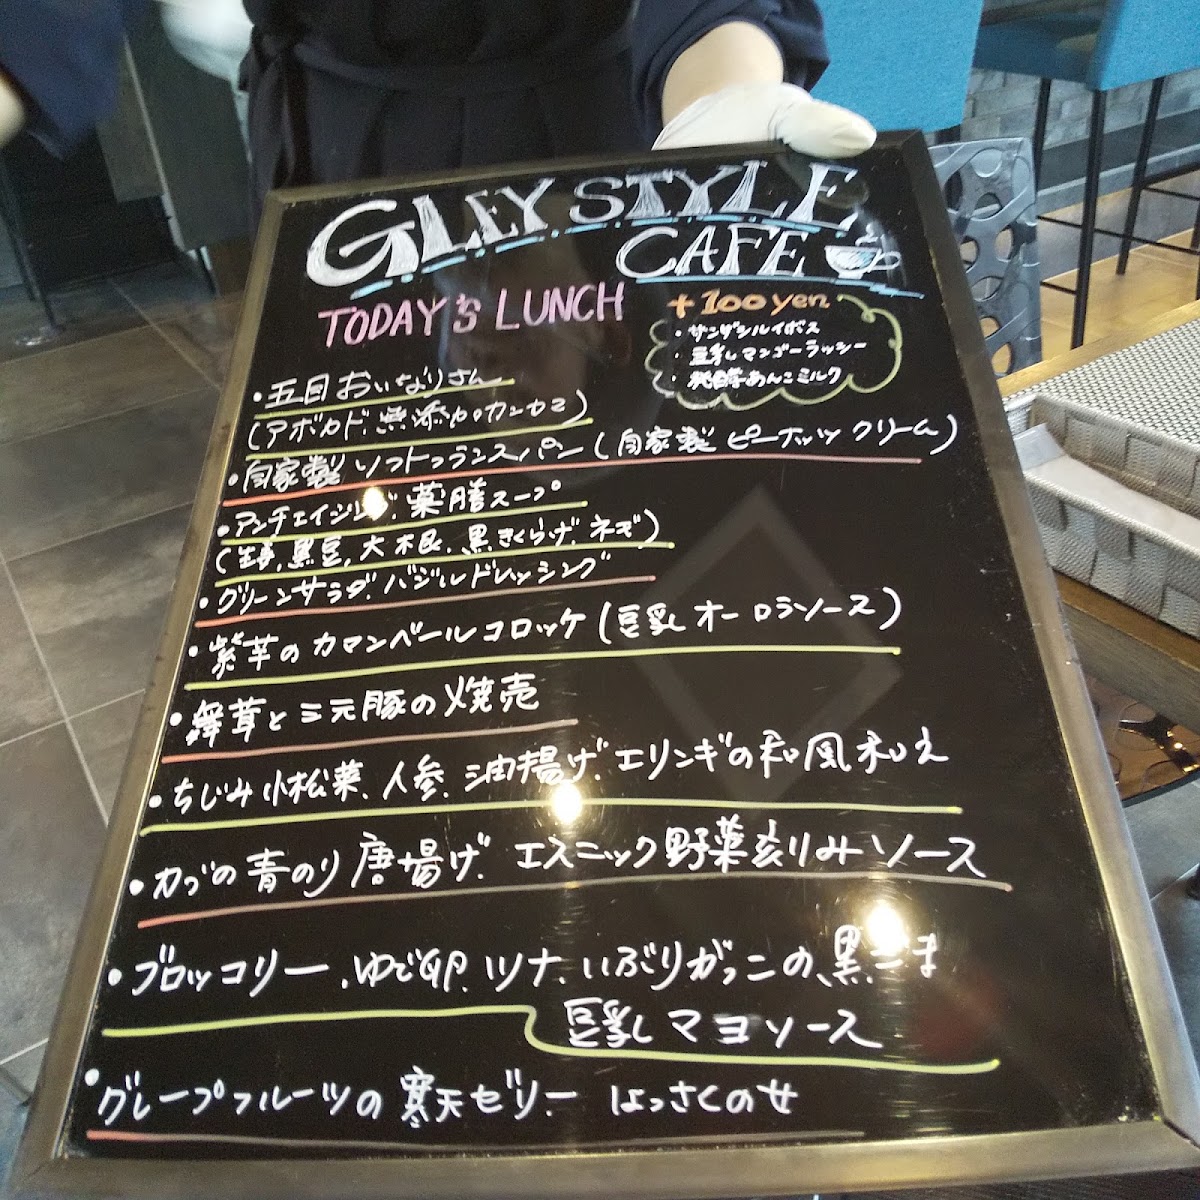 GLEY STYLE
CAFE
TODAY'S LUNCH
+100yen
・サンザシルイボス
・豆乳マンゴーラッシー
・発酵あんこミルク
・五目おいなりさん
(アボカド、無添加カンカミ)
・自家製ソフトフランスパン(自家製ピーナッツクリーム)
・アンチエイジング、薬膳スープ
(生姜,黒豆,大根.黒きくらげ.ネギ)
・グリーンサラダ、バジルドレッシング
・紫芋のカマンベールコロッケ(豆乳オーロラソース)
・舞茸と三元豚の焼売
・ちぢみ小松菜、人参、油揚げ、エリンギの和風和え
・カブの青のり唐揚げ、エスニック野菜刻みソース
・ブロッコリー、ゆで卵、ツナ、いぶりがっこの黒ごま
豆乳マヨソース
・グレープフルーツの寒天ゼリー はっさくのせ